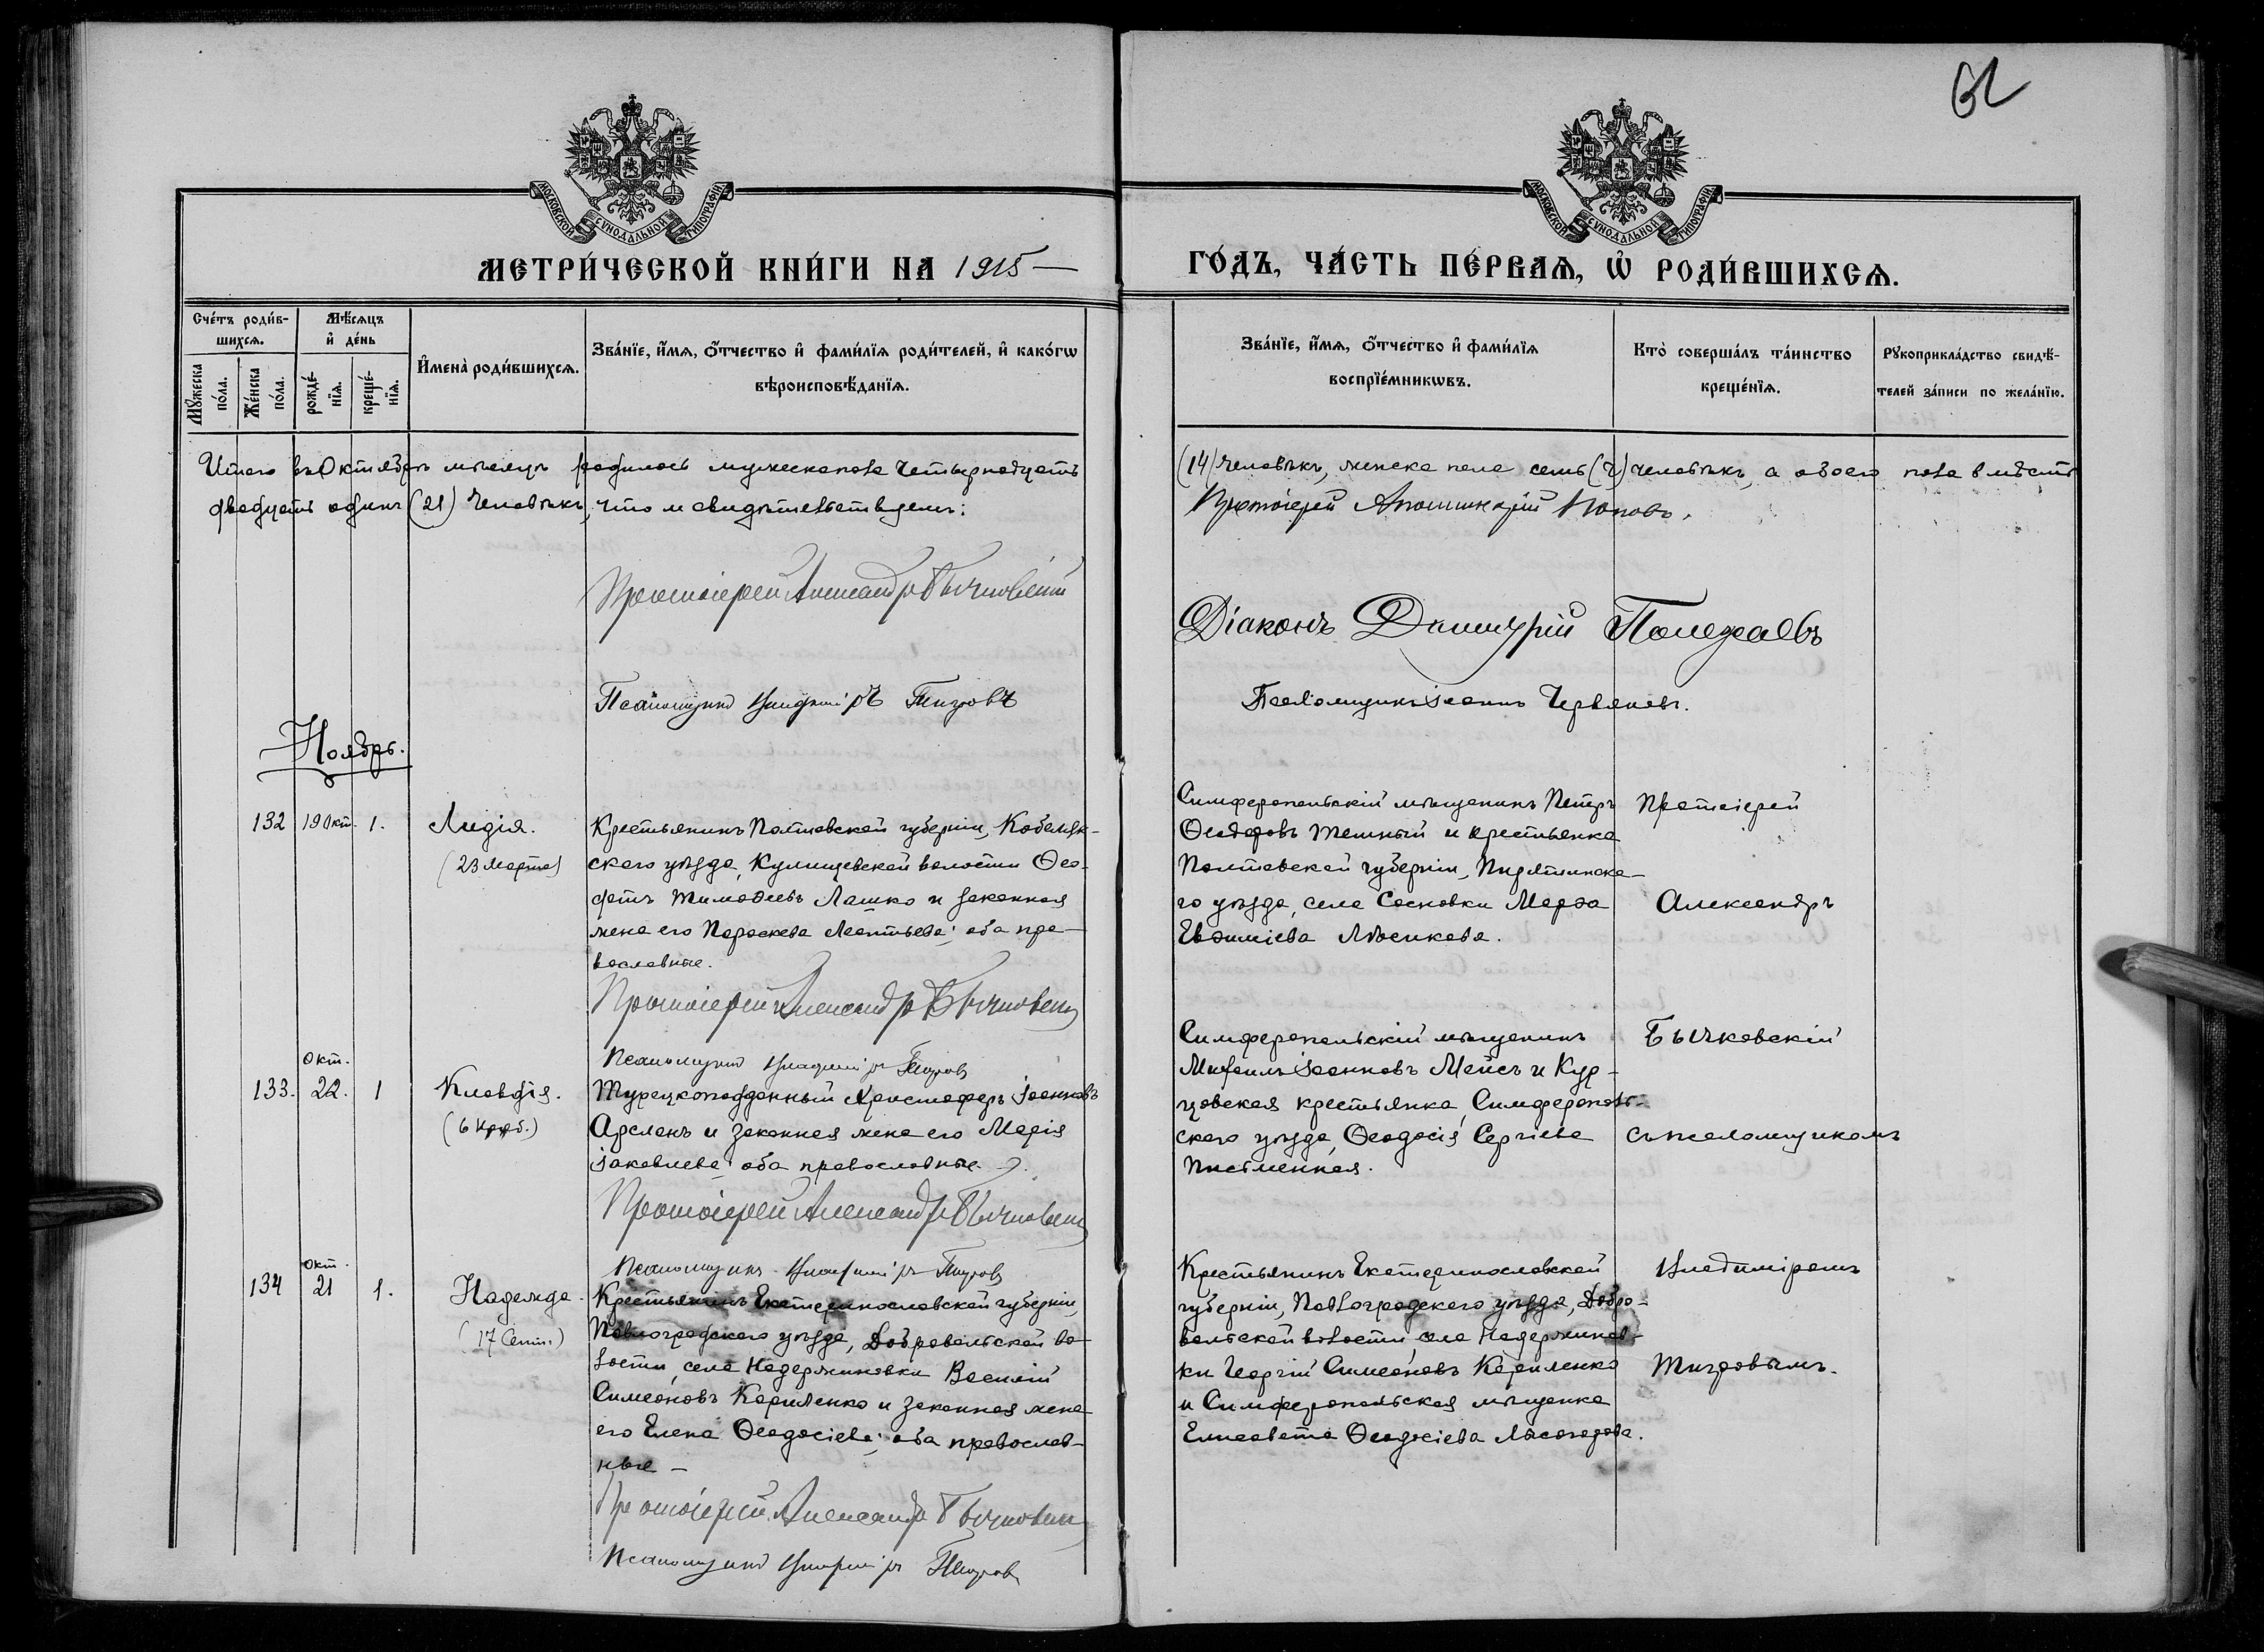 62
МОСКОВСКОЙ СѴНОДАЛЬНОЙ ТИПОГРАФІИ
МОСКОВСКОЙ СѴНОДАЛЬНОЙ ТИПОГРАФІИ
МЕТРИ́ЧЕСКОЙ КНИ́ГИ НА 1915 —
ГО́ДЪ, ЧА́СТЬ ПЕ́РВАѦ, Ѡ РОДИ́ВШИХСѦ.
Сче́тъ роди́в-
шихсѧ.
Мꙋ́жеска по́ла.
Же́нска по́ла.
Мѣ́сѧцъ
и҆ де́нь
рожде́-
нїѧ.
креще́-
нїѧ.
И҆мена̀ роди́вшихсѧ.
Зва́нїе, и҆́мѧ, ѻ҆́тчество и҆ фами́лїѧ роди́телей, и҆ како́гѡ
вѣроисповѣ́данїѧ.
Зва́нїе, и҆́мѧ, ѻ҆́тчество и҆ фами́лїѧ
воспрїе́мникѡвъ.
Кто̀ соверша́лъ та́инство
креще́нїѧ.
Рꙋкоприкла́дство свидѣ́-
телей за́писи по жела́нїю.
Итого въ Октябрѣ мѣсяцѣ родилось мужеска пола четырнадцать
(14) человѣкъ, женска пола семь (7) человѣкъ, а обоего пола вмѣстѣ
двадцать одинъ (21) человѣкъ, что и свидѣтельствуемъ:
Протоіерей Аполлинарій Поповъ.
Протоіерей Александръ Бычковскій
Діаконъ Димитрій Полежаевъ
Псаломщикъ Владиміръ Тигровъ
Псаломщикъ Іоаннъ Червяковъ.
Ноябрь.
132 19 Окт. 1.
Лидія.
(23 Марта)
Крестьянинъ Полтавской губерніи, Кобеляк-
скаго уѣзда, Кулищевской волости Ѳео-
фанъ Тимофеевъ Лашко и законная
жена его Параскева Леонтьева; оба пра-
вославные.
Протоіерей Александръ Бычковскій
Псаломщикъ Владиміръ Тигровъ
Симферопольскій мѣщанинъ Петръ
Ѳеодоровъ Темный и крестьянка
Полтавской губерніи, Пирятинска-
го уѣзда, села Сосновки Марѳа
Евфиміева Лѣсикова.
Протоіерей
Александръ
133. Окт. 22. 1
Клавдія.
(6 Нояб.)
Турецкоподданный Христофоръ Іоанновъ
Арсланъ и законная жена его Марія
Іаковлева; оба православные.
Протоіерей Александръ Бычковскій
Псаломщикъ Владиміръ Тигровъ
Симферопольскій мѣщанинъ
Михаилъ Іоанновъ Мейсъ и Кур-
цовская крестьянка, Симферополь-
скаго уѣзда, Ѳеодосія Сергіева
Письменная.
Бычковскій
съ псаломщикомъ
134 Окт. 21 1.
Надежда.
(17 Сент.)
Крестьянинъ Екатеринославской губерніи,
Павлоградскаго уѣзда, Добровольской во-
лости, села Надержиновки Василій
Симеоновъ Кариленко и законная жена
его Елена Ѳеодосіева; оба православ-
ные —
Протоіерей Александръ Бычковскій
Псаломщикъ Владиміръ Тигровъ
Крестьянинъ Екатеринославской
губерніи, Павлоградскаго уѣзда, Добро-
вольской волости, села Надержинов-
ки Георгій Симеоновъ Кариленко
и Симферопольская мѣщанка
Елисавета Ѳеодосіева Лѣсогорова.
Владиміромъ
Тигровымъ.